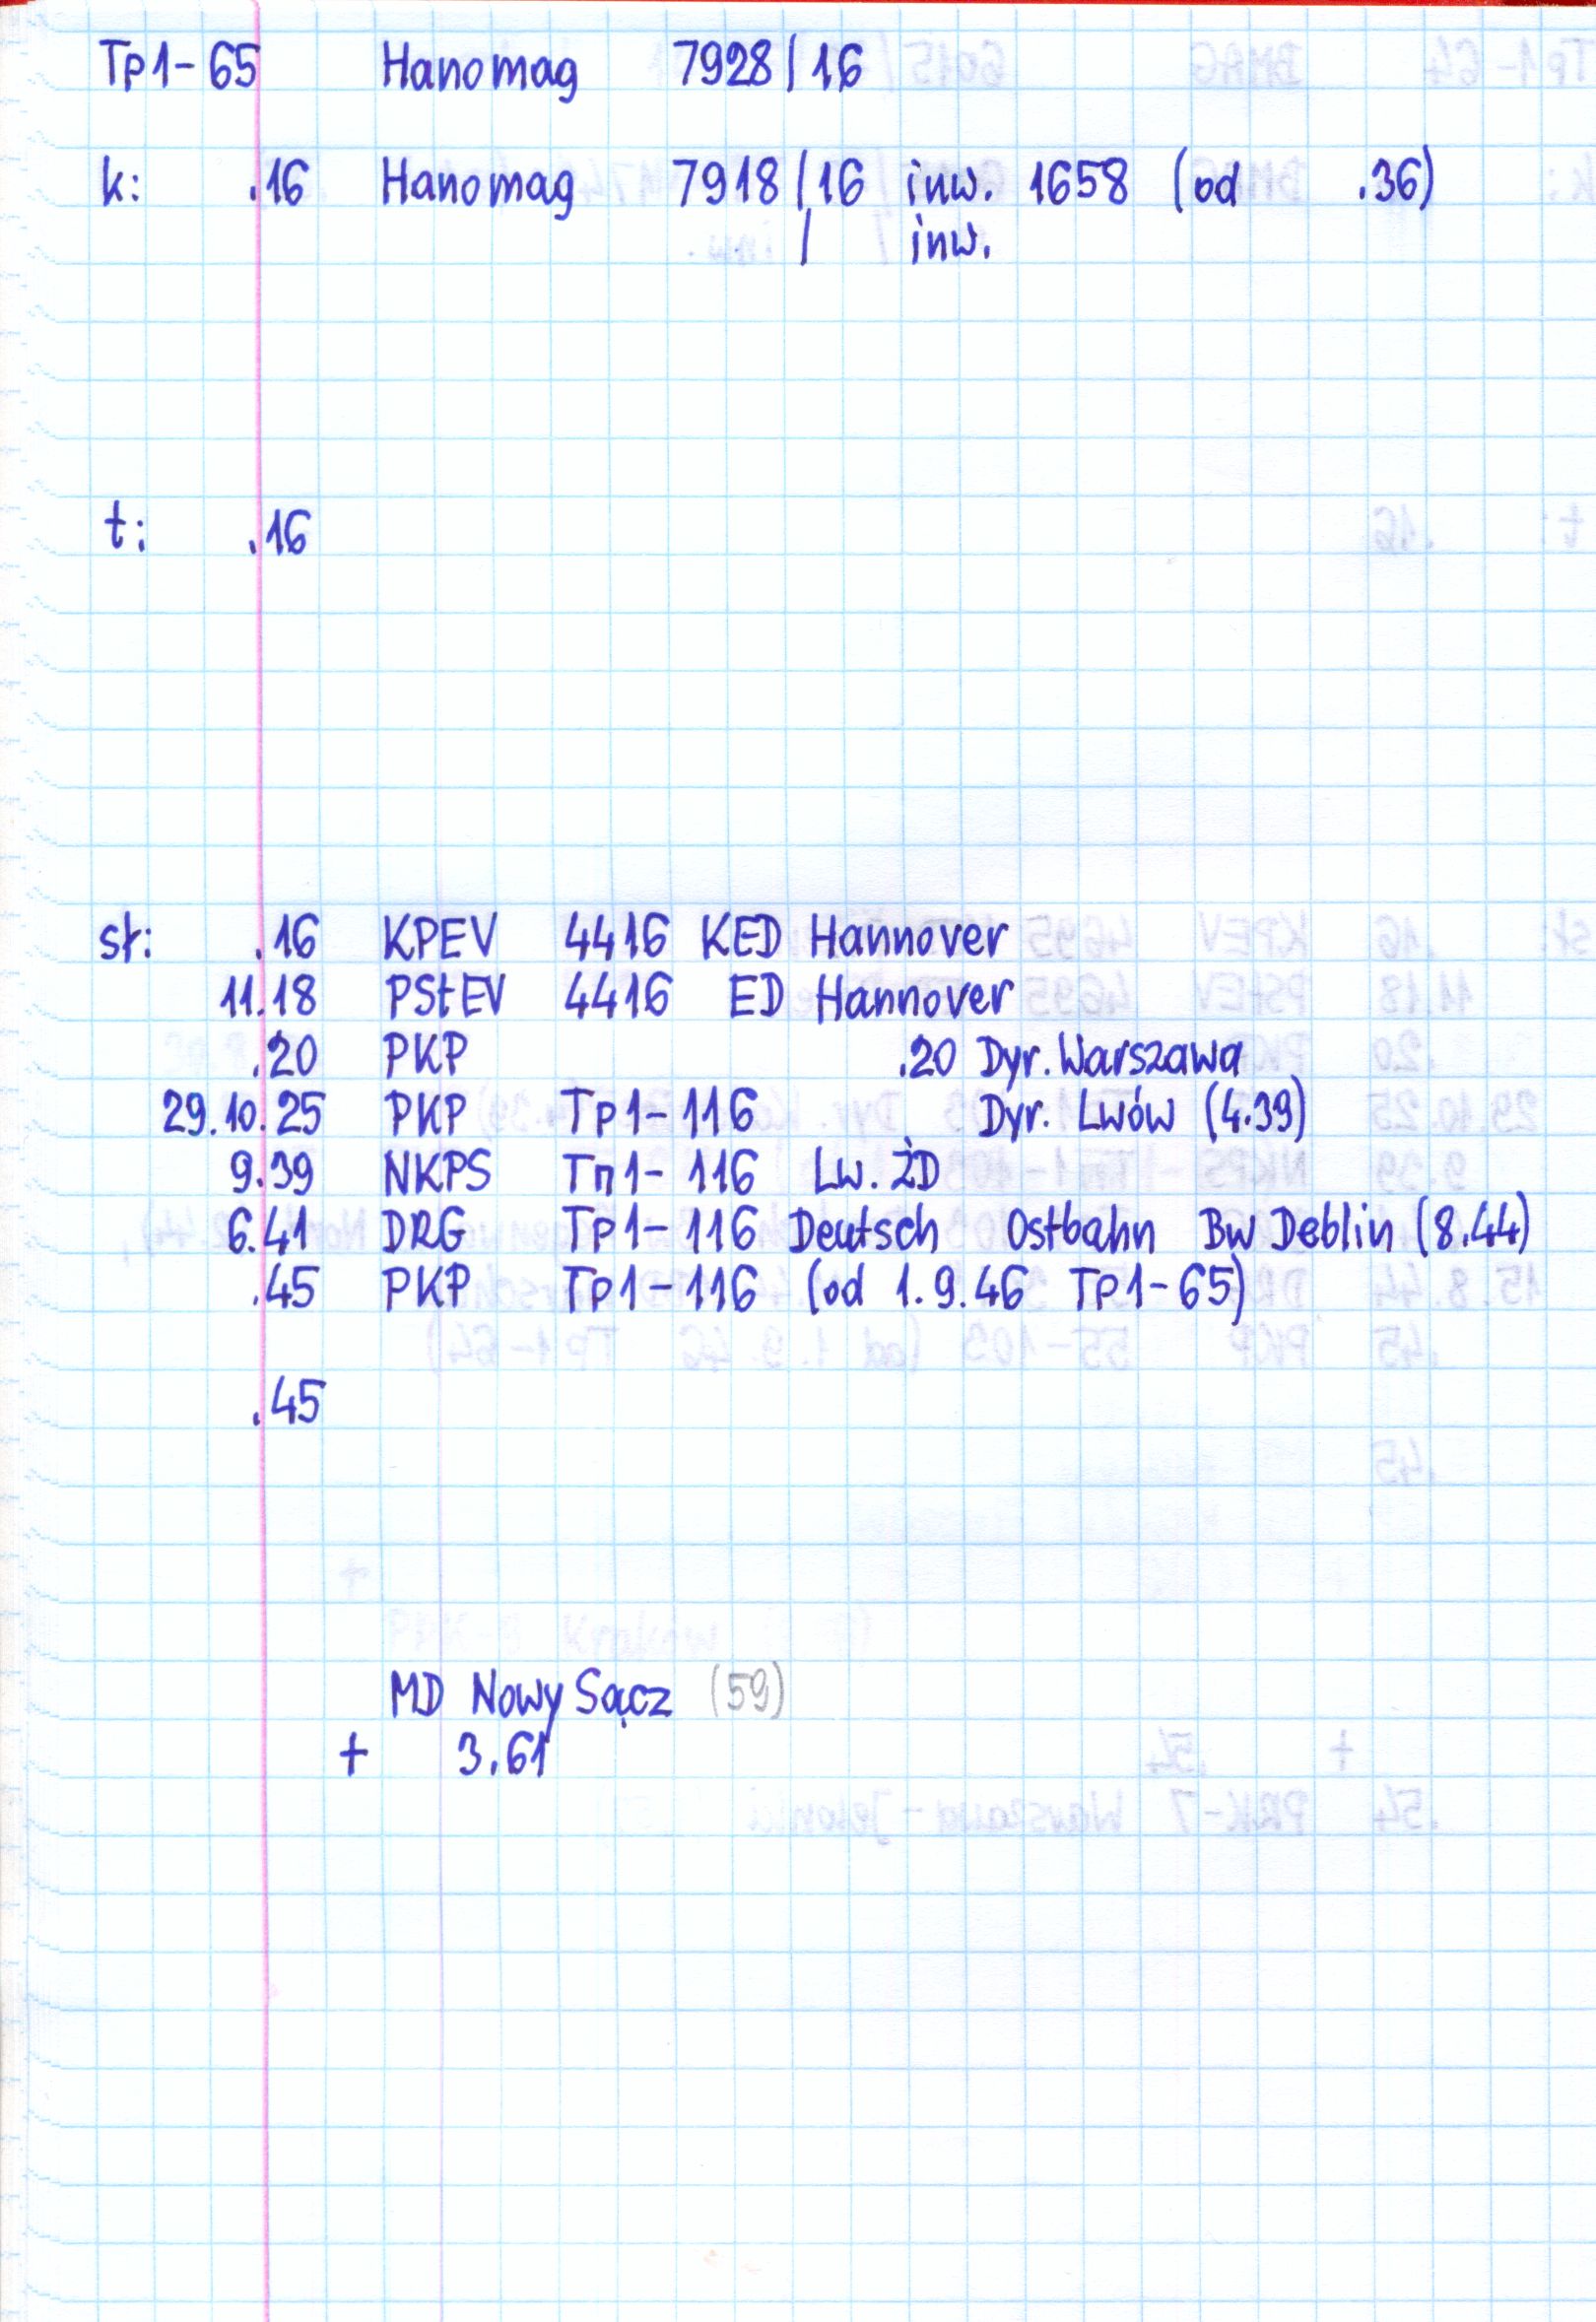 Tp1-65 Hanomag 7928/16
k: .16 Hanomag 7918/16 inw. 1658 (od .36)
/ inw.
t: .16
sł: .16 KPEV 4416 KED Hannover
11.18 PStEV 4416 ED Hannover
.20 PKP .20 Dyr. Warszawa
29.10.25 PKP Tp1-116 Dyr. Lwów (4.39)
9.39 NKPS Тп1-116 Lw. ŻD
6.41 DRG Tp1-116 Deutsch Ostbahn Bw Deblin (8.44)
.45 PKP Tp1-116 (od 1.9.46 Tp1-65)
.45
MD Nowy Sącz (59)
+ 3.61